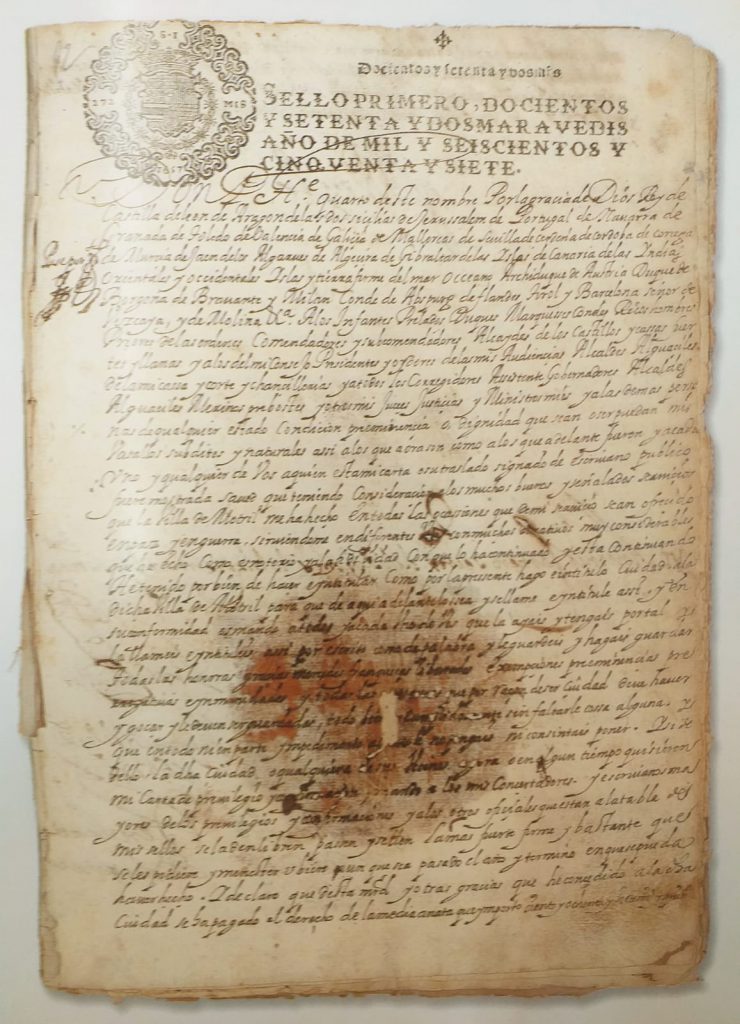 Docientos y setenta y dos mrs
SELLO PRIMERO, DOCIENTOS
Y SETENTA Y DOS MARAVEDIS
AÑO DE MIL Y SEISCIENTOS Y
CINQVENTA Y SIETE.
DON PHe quarto deste nombre Por la gracia de Dios Rey de
Castilla de leon de Aragon de las dos sicilias de Jerussalem de Portugal de Nauarra de
Granada de toledo de Valencia de Galiçia de Mallorcas de Seuilla de cerdeña de cordoba de corcega
de Murcia de Jaen de los Algarues de Algecira de Gibraltar de las Islas de Canaria de las Indias
Orientales y occidentales Islas y tierra firme del mar Occeano Archiduque de Austria Duque de
Borgoña de Brauante y Milan Conde de Abspurg de flandes tirol y Barcelona señor de
Vizcaya, y de Molina &a. A los Infantes Prelados Duques Marqueses Condes Ricos hombres
Priores de las ordenes Comendadores y subcomendadores Alcaydes de los Castillos y casas fuer
tes y llanas y a los del mi Consejo Presidentes y oydores de las mis Audiencias Alcaldes Alguaciles
de la mi cassa y corte y chancillerias y a todos los Corregidores Asistente Gobernadores Alcaldes
Alguaciles Merinos prebostes y otros mis Jueces Justicias y Ministros mios y a las demas perso
nas de qualquier estado Condicion preeminencia o dignidad que sean o ser puedan mis
Vasallos subditos y naturales assi a los que aora son como a los que adelante fueren y a cada
Vno y qualquier de Vos a quien esta mi carta o su traslado signado de escriuano publico
fuere mostrada saued que teniendo Consideracion a los muchos buenos y señalados seruicios
que la Villa de Motril me ha hecho en todas las ocasiones que de mi seruicio se an ofrecido
en paz y en guerra, siruiendome en diferentes con muchos donatiuos muy considerables
que a echo Como es notorio con que lo ha continuado y esta continuando
He tenido por bien de hacer e yntitular Como por la presente hago e yntitulo Ciudad a la
dicha Villa de Motril para que de aqui adelante lo sea y se llame e yntitule assi. y en
su conformidad os mando a todos y a cada que la ayais y tengais por tal y
la llameis e yntituleis assi por escrito como de palabra y le guardeis y hagais guardar
todas las honrras gracias mercedes franqueças libertades exempciones preeminencias pre
rrogatiuas e ynmunidades y todas las por raçon de ser Ciudad deue hauer
y goçar y le deuen ser guardadas, todo bien sin faltarle cosa alguna. y
que en todo ni en parte ympedimento no consintais poner. Y si de
dello la dha Ciudad, o qualquiera de sus aora o en algun tiempo quisieren
mi Carta de priuilegio y confirmacion mando a los mis Concertadores. y escriuanos ma
yores de los priuilegios y confirmaciones y a los otros oficiales que estan a la tabla de
mis sellos se la den libren pasen y sellen la mas fuerte firme y bastante que
se les pidiere y menester vbiere aun que sea pasado el año y termino en que se pueda
hauer hecho. Y declaro que desta mrd y otras gracias que he concedido a la dha
Ciudad se ha pagado el derecho de la media anata que ymporto